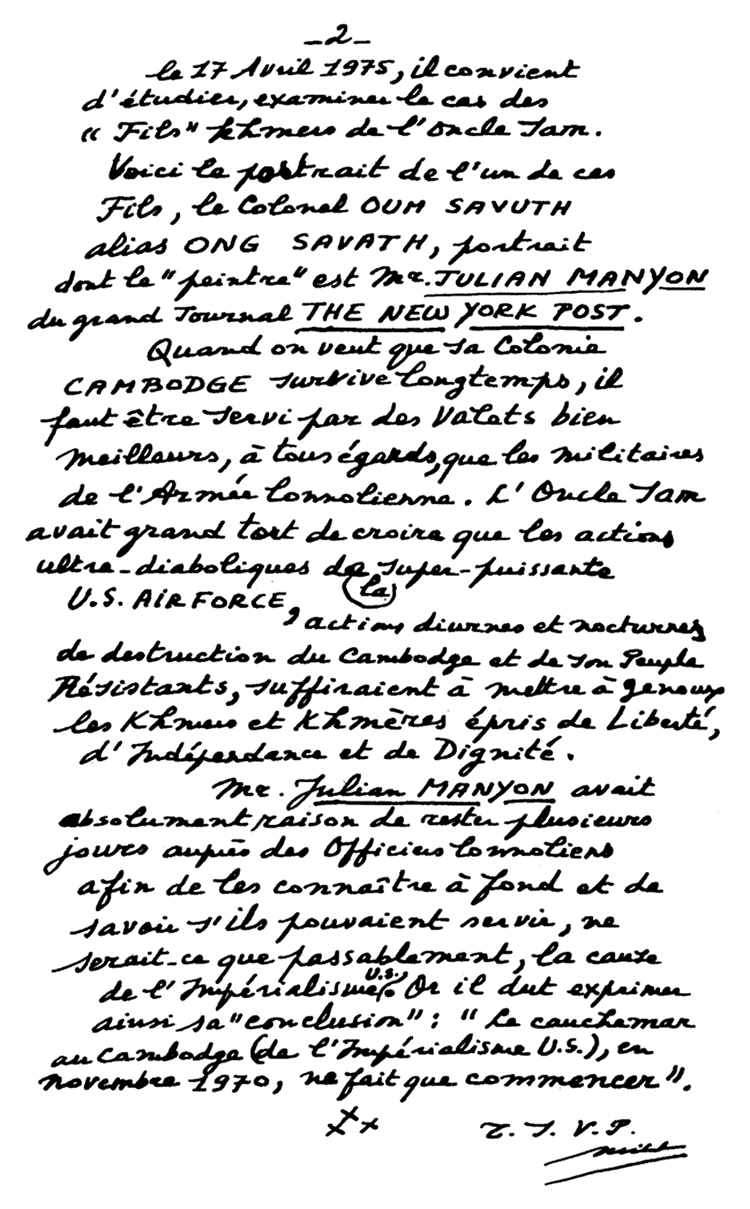 -2-
le 17 Avril 1975, il convient
d'étudier, examiner le cas des
"Fils" khmers de l'Oncle Sam.
Voici le portrait de l'un de ces
Fils, le Colonel OUM SAVUTH
alias ONG SAVATH, portrait
dont le "peintre" est Mr. JULIAN MANYON
du grand Journal THE NEW YORK POST.
Quand on veut que sa Colonie
CAMBODGE survive longtemps, il
faut être servi par des Valets bien
meilleurs, à tous égards, que les militaires
de l'Armée lonnolienne. L'Oncle Sam
avait grand tort de croire que les actions
ultra-diaboliques de la super-puissante
U.S. AIR FORCE,
actions diurnes et nocturnes
de destruction du Cambodge et de son Peuple
Résistants, suffiraient à mettre à genoux
les Khmers et Khmères épris de Liberté,
d'Indépendance et de Dignité.
Mr. Julian MANYON avait
absolument raison de rester plusieurs
jours auprès des Officiers lonnoliens
afin de les connaître à fond et de
savoir s'ils pouvaient servir, ne
serait-ce que passablement, la cause
de l'Impérialisme U.S. Or il dut exprimer
ainsi sa "conclusion" : "Le cauchemar
au Cambodge (de l'Impérialisme U.S.), en
novembre 1970, ne fait que commencer".
T. S. V. P.